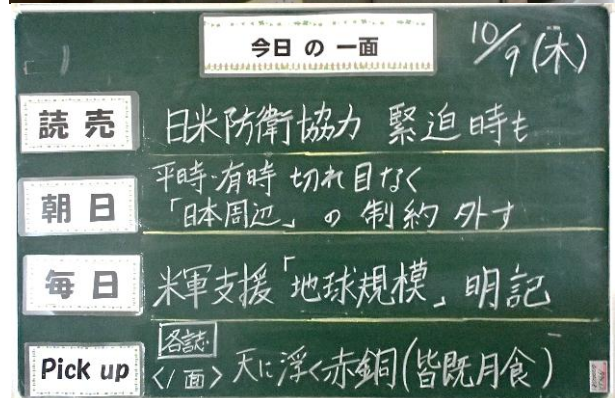 今日の一面
10/9(木)
読売
日米防衛協力 緊迫時も
朝日
平時・有時 切れ目なく
「日本周辺」の制約外す
毎日
米軍支援「地球規模」明記
Pick up
各誌
<1面> 天に浮く赤銅(皆既月食)